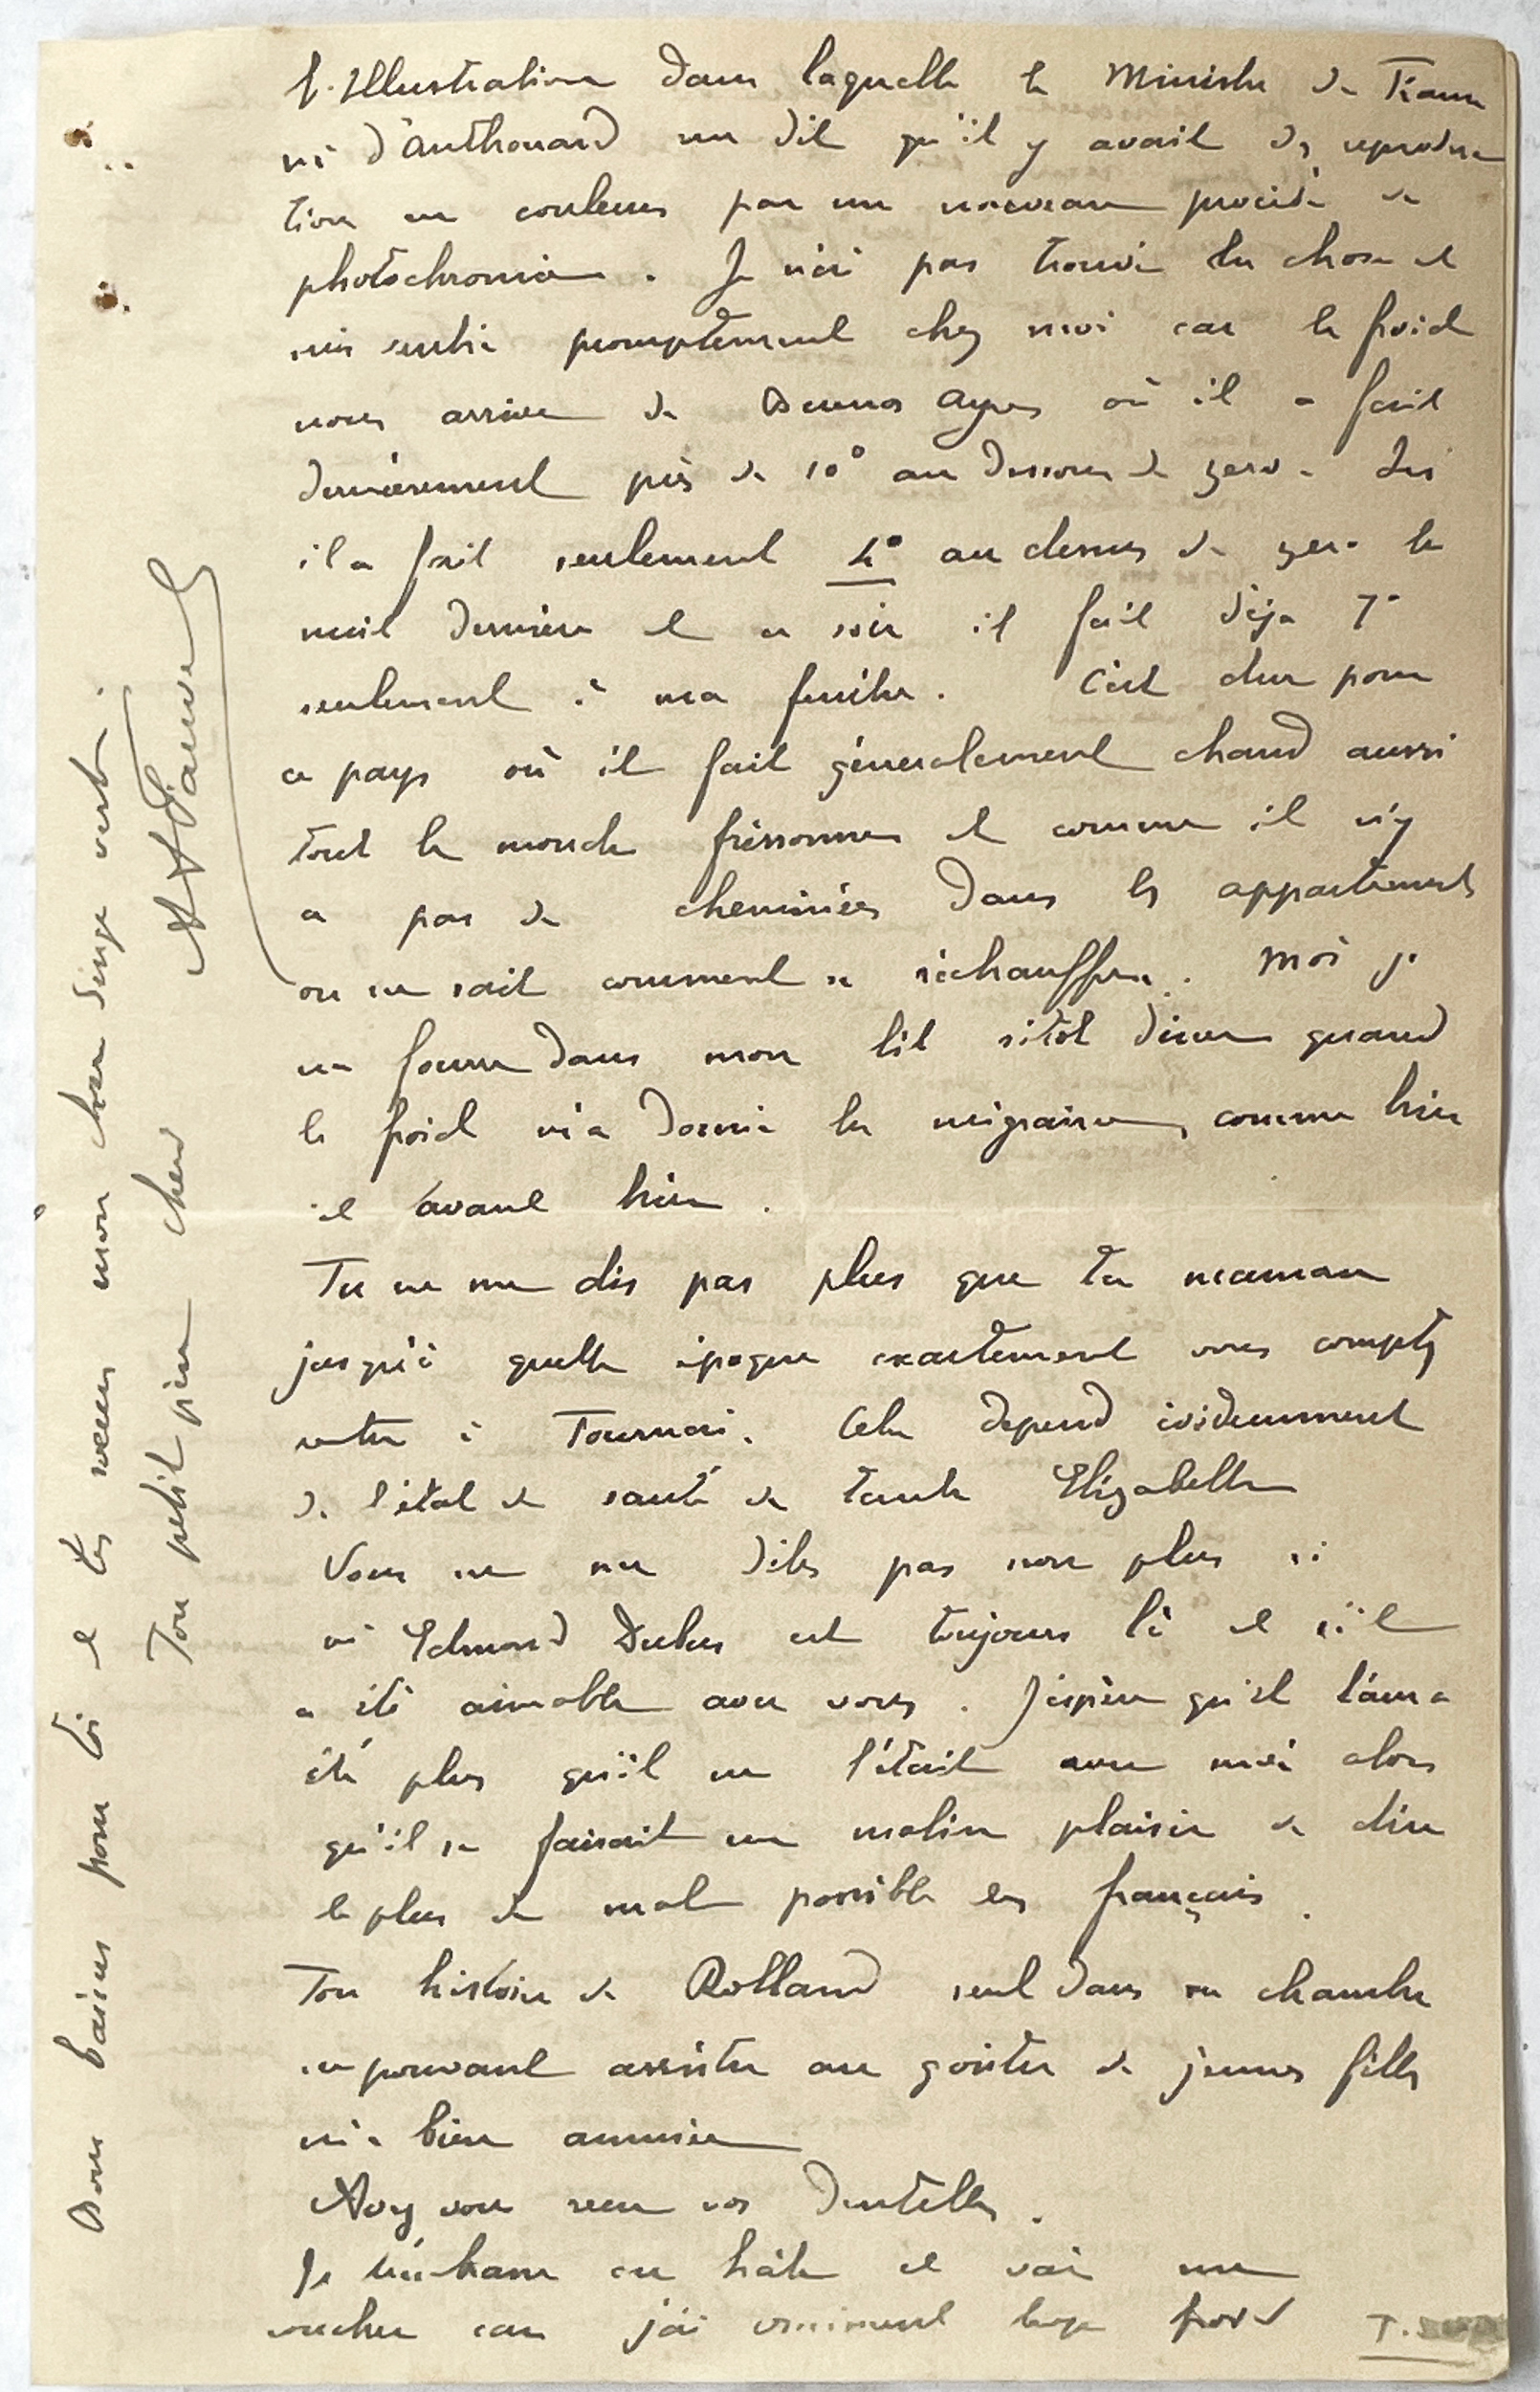 l'Illustration dans laquelle le Ministre de France
Mr d'Anthouard me dit qu'il y avait des reproduc
tion en couleurs par un nouveau procédé de
photochromie. Je n'ai pas trouvé la chose et
suis rentré promptement chez moi car le froid
nous arrive de Buenos Ayres où il a fait
dernièrement près de 10° au dessous de zero. Ici
il a fait seulement 4° au dessus de zero la
nuit dernière et ce soir il fait déja 7°
seulement à ma fenêtre. C'est dur pour
ce pays où il fait géneralement chaud aussi
tout le monde frissonne et comme il n'y
a pas de cheminées dans les appartements
on ne sait comment se réchauffer. Moi je
me fourre dans mon lit sitôt diner quand
le froid m'a donné la migraine, comme hier
et avant hier.
Tu ne me dis pas plus que ta maman
jusqu'à quelle époque exactement vous comptez
rester à Tournai. Cela depend évidemment
de l'état de santé de tante Elizabeth
Vous ne me dites pas non plus si
Mr Edmond Dubus est toujours là et s'il
a été aimable avec vous. J'espère qu'il l'aura
été plus qu'il ne l'était avec moi alors
qu'il se faisait un malin plaisir de dire
le plus de mal possible des français.
Ton histoire de Rolland seul dans sa chambre
ne pouvant assister au goûter de jeunes filles
m'a bien amusé
Avez vous reçu vos dentelles.
Je t'embrasse en hâte et vais me
coucher car j'ai vraiment trop froid
Bons baisers pour toi et tes soeurs mon cher singe vert.
Ton petit père cheri